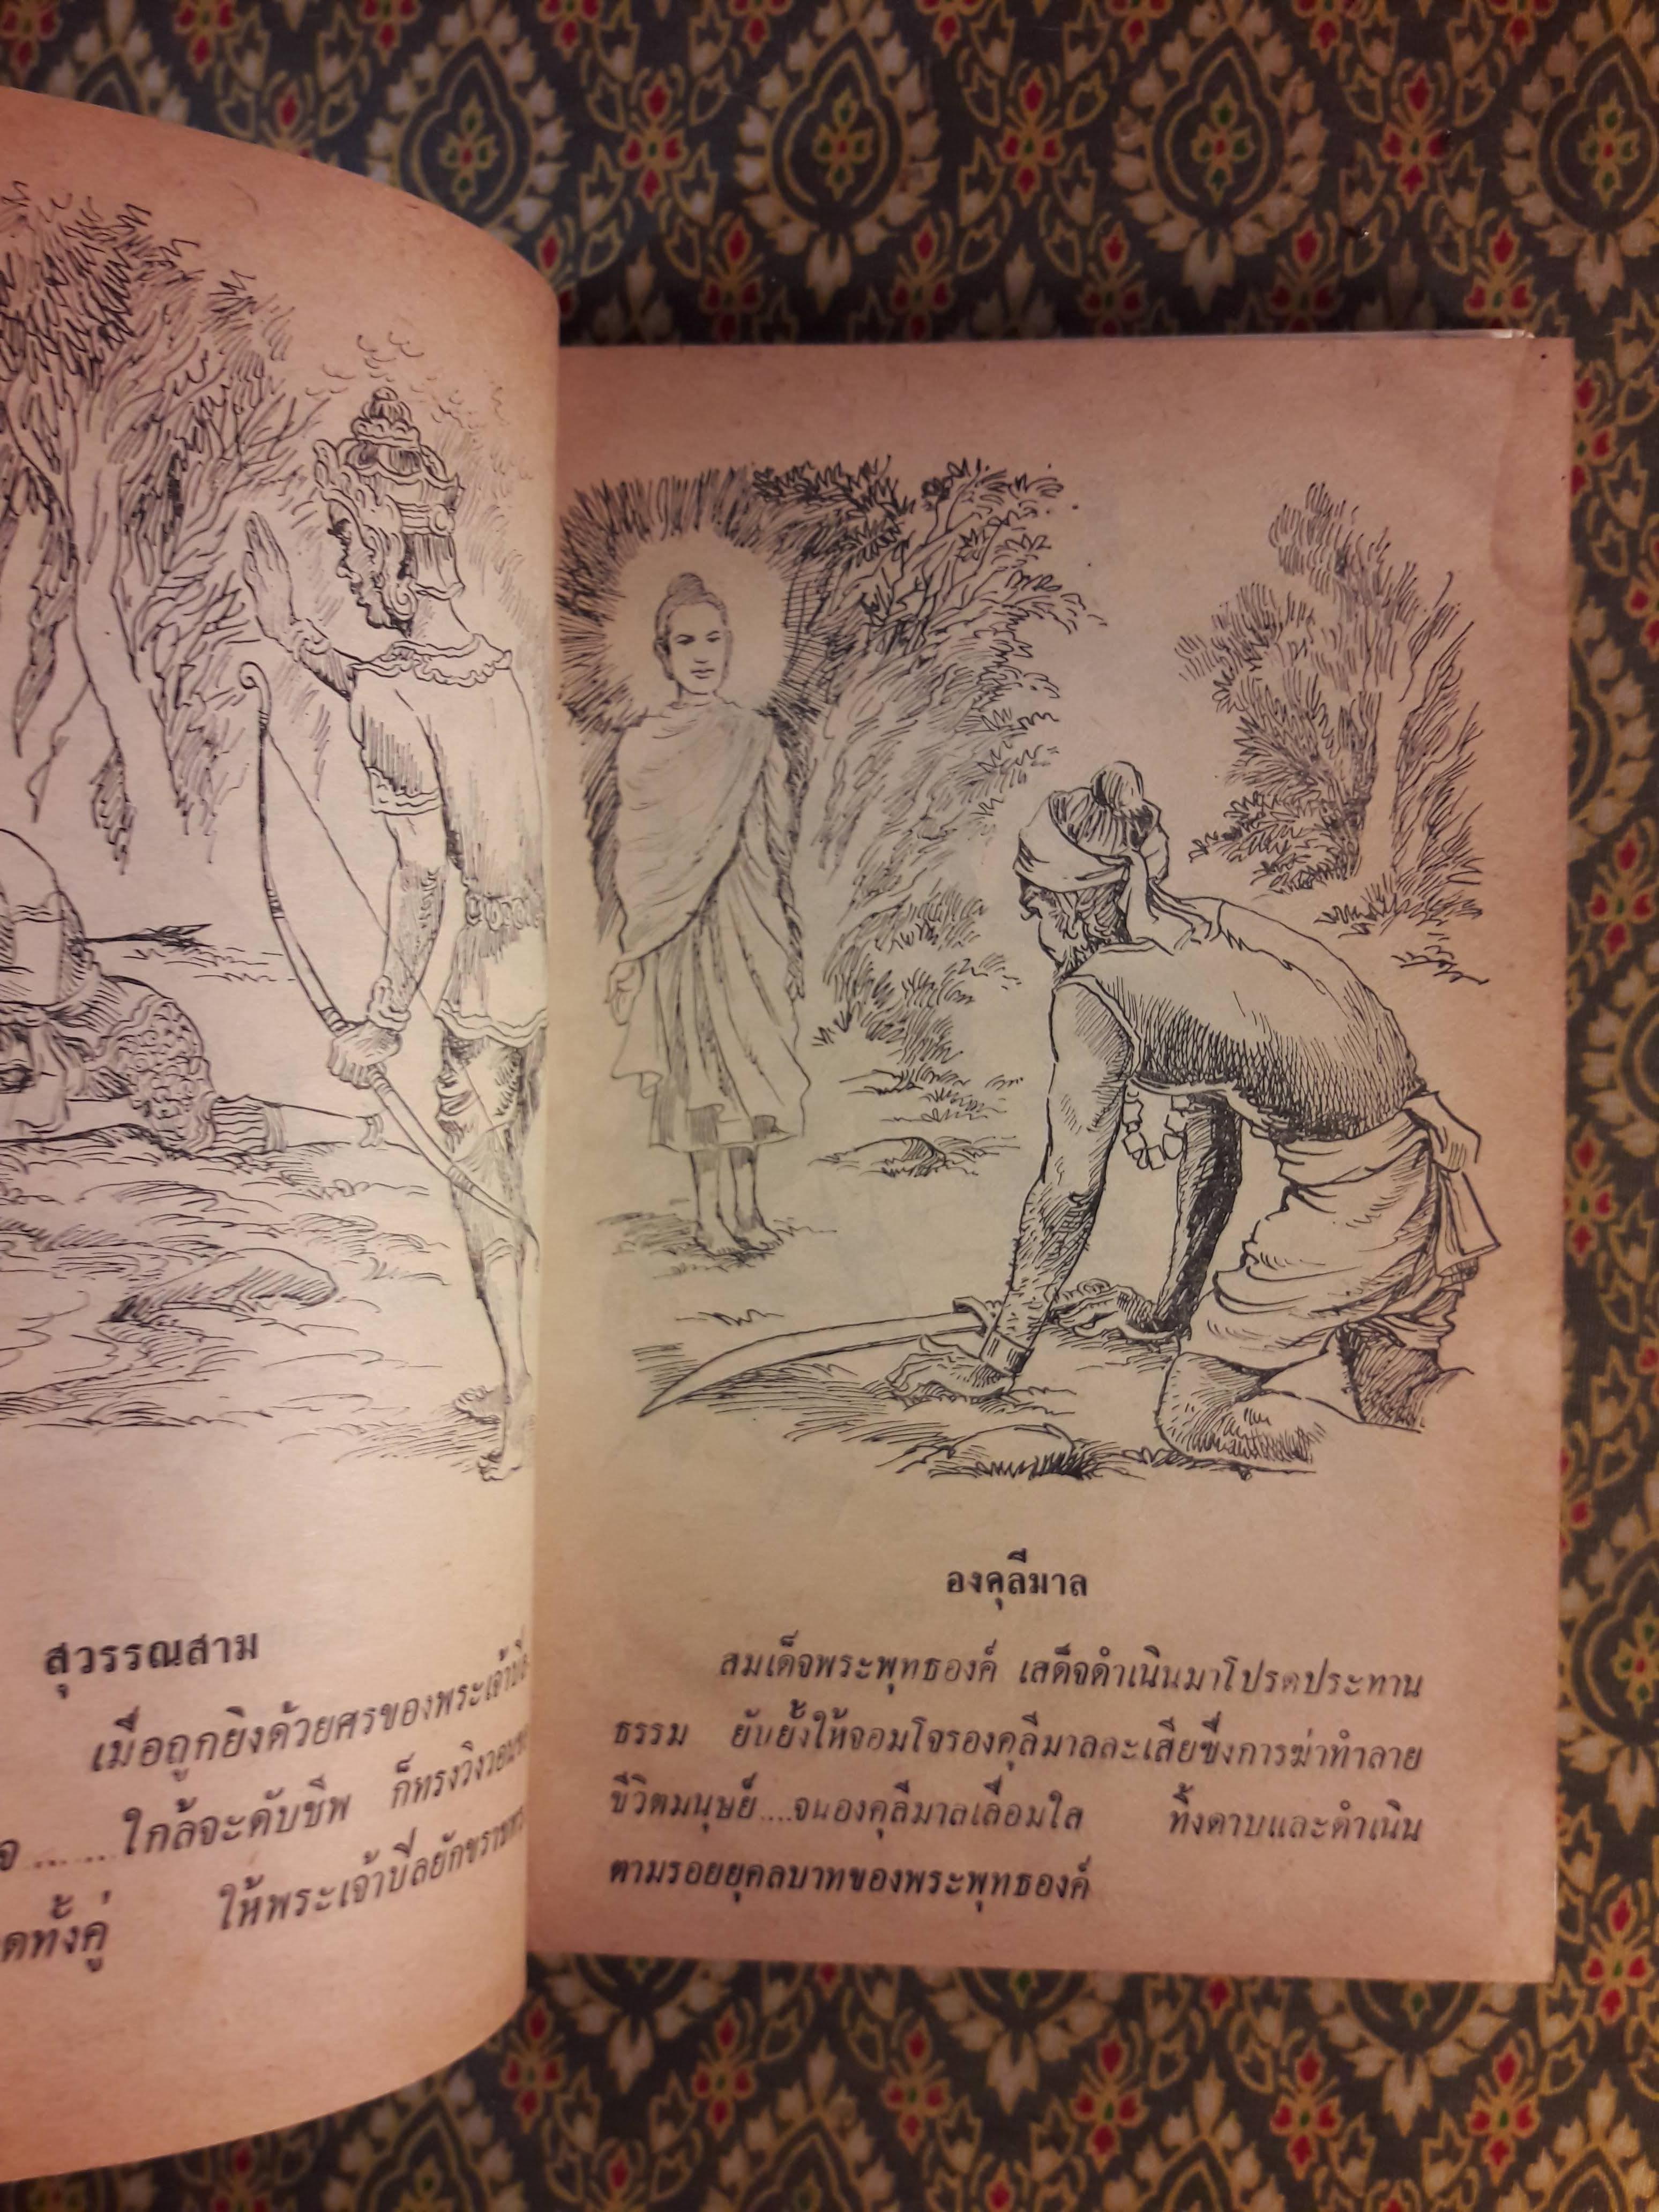 สุวรรณสาม
เมื่อถูกยิงด้วยศรของพระเจ้า
........ใกล้จะดับชีพ ก็ทรงวิงวอน
ทั้งคู่ ให้พระเจ้าบิลยักขราช
องคุลีมาล
สมเด็จพระพุทธองค์ เสด็จดำเนินมาโปรดประทาน
ธรรม ยับยั้งให้จอมโจรองคุลีมาลละเสียซึ่งการฆ่าทำลาย
ชีวิตมนุษย์....จนองคุลีมาลเลื่อมใส ทิ้งดาบและดำเนิน
ตามรอยยุคลบาทของพระพุทธองค์